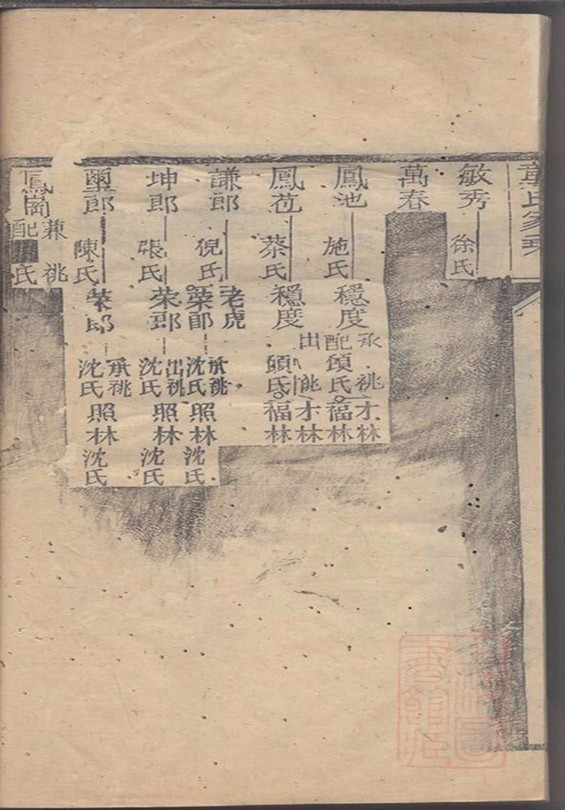 氏家乘
敏秀 徐氏
萬春
鳳池 施氏 穩度 承祧 配傾氏 才林 福林
鳳苞 蔡氏 穩度 出能 氏 才林 福林
謙郎 倪氏 老虎 榮郎 承祧 沈氏 照林 沈氏
坤郎 張氏 榮郎 出祧 沈氏 照林 沈氏
璽郎 陳氏 榮郎 承祧 沈氏 照林 沈氏
鳳岗 兼祧 配氏